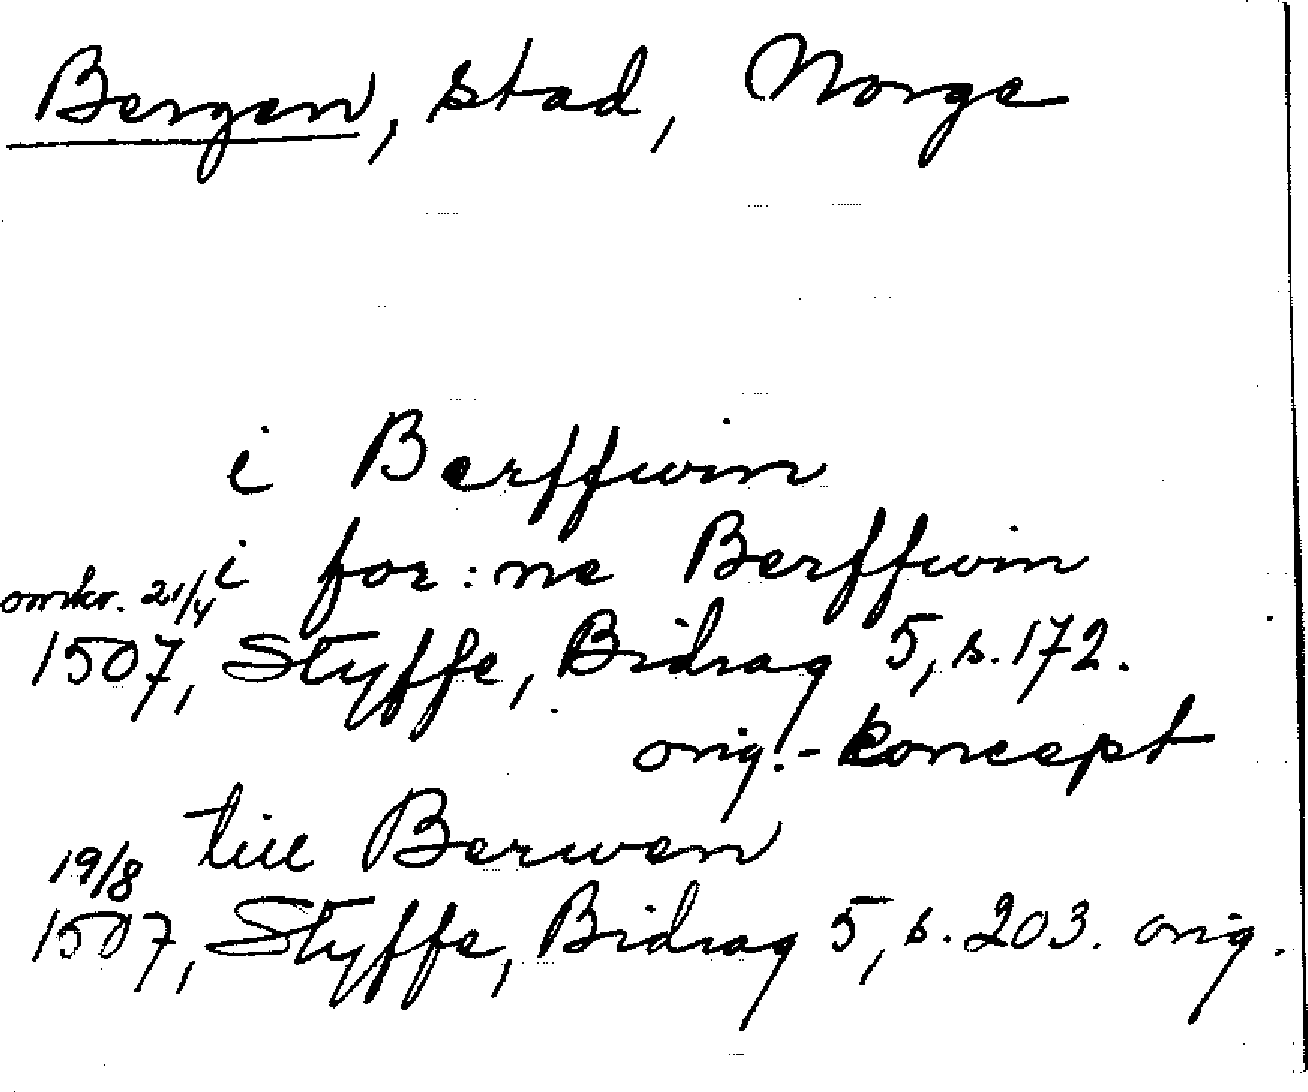 Bergen, stad, Norge
i Berffwin
i for:ne Berffwin
omkr. 21/4
1507, Styffe, Bidrag 5, s. 172.
orig.-koncept
till Berwen
19/8
1507, Styffe, Bidrag 5, s. 203. orig.